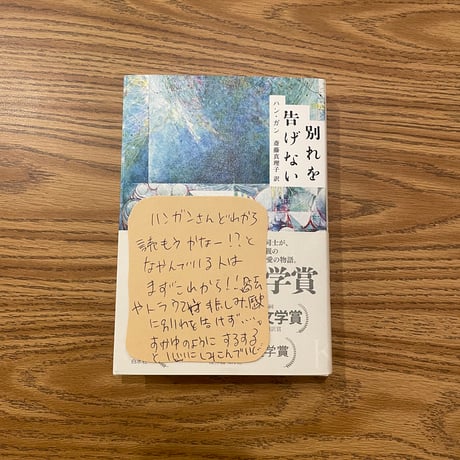 別れを
告げない
ハン・ガン
斎藤真理子 訳
ハンガンさんどれから
読もうかなー!?と
なやんでいる人は
まずこれから!!過去
やトラウマは悲しみ歴史
に別れを告げず……
おかゆのように するする
と心にしみこんで
同士が、
愛の物語。
学賞
文学賞
学賞
白水社
k